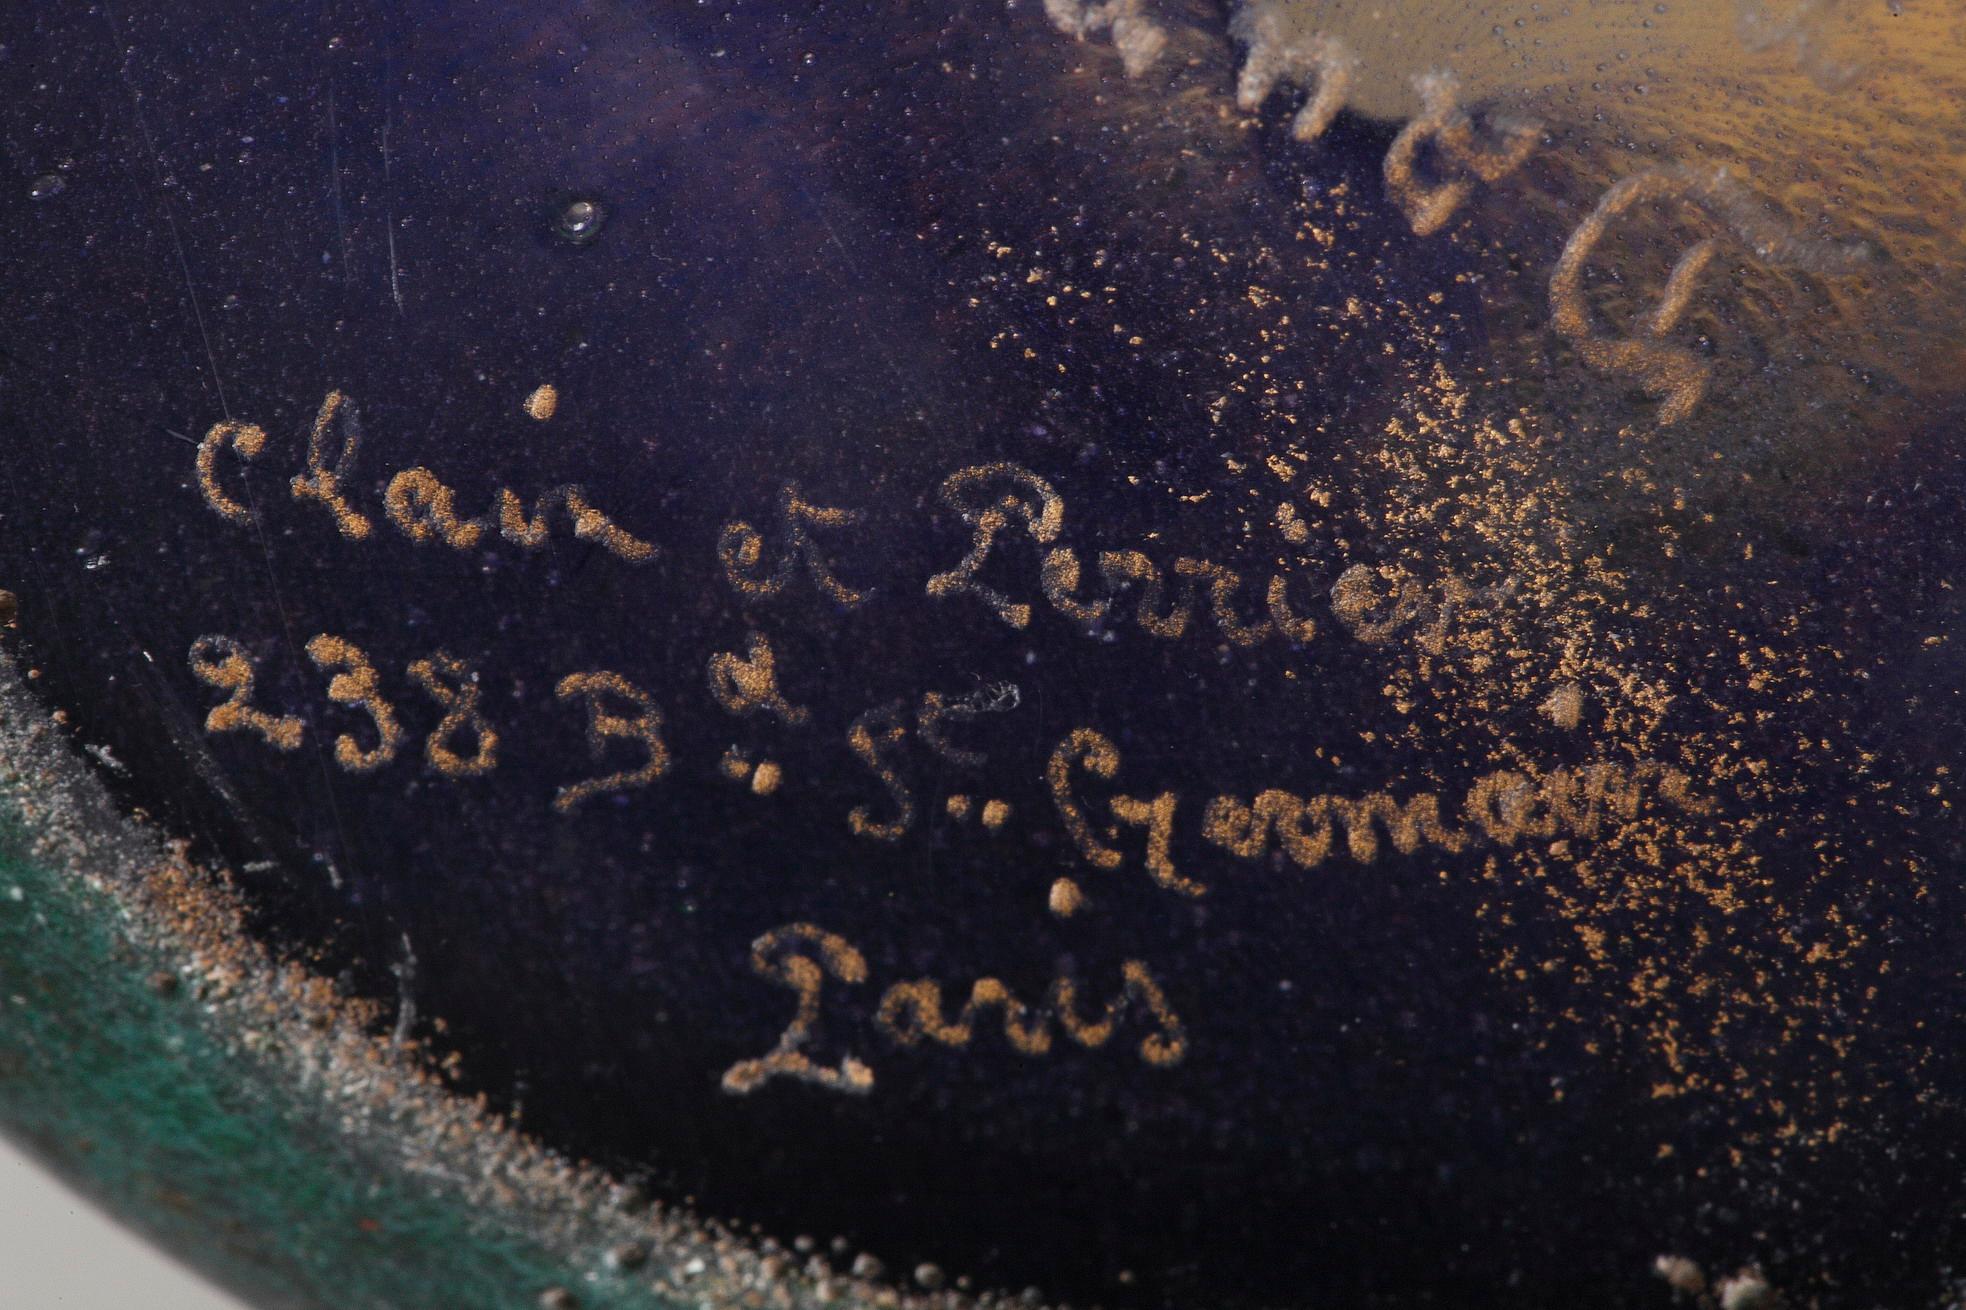 Clain et Perrier
238 Bd. St. Germain
Paris